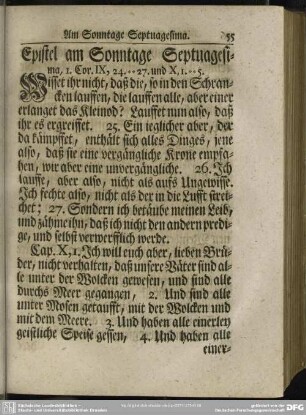 Am Sonntage Septuagesima. 95
Epistel am Sonntage Septuagesi-
ma, 1. Cor. IX, 24.--27. und X, 1.--5.
Wisset ihr nicht, daß die, so in den Schran-
cken lauffen, die lauffen alle, aber einer
erlanget das Kleinod? Lauffet nun also, daß
ihr es ergreiffet. 25. Ein ieglicher aber, der
da kämpffet, enthält sich alles Dinges, jene
also, daß sie eine vergängliche Krone empfa-
hen, wir aber eine unvergängliche. 26. Ich
lauffe, aber also, nicht als aufs Ungewisse.
Ich fechte also, nicht als der in die Lufft strei-
chet: 27. Sondern ich betäube meinen Leib,
und zähme ihn, daß ich nicht den andern predi-
ge, und selbst verwerfflich werde.
Cap. X, 1. Ich will euch aber, lieben Brü-
der, nicht verhalten, daß unsere Väter sind al-
le unter der Wolcken gewesen, und sind alle
durchs Meer gegangen, 2. Und sind alle
unter Mosen getaufft, mit der Wolcken und
mit dem Meere. 3. Und haben alle einerley
geistliche Speise gessen, 4. Und haben alle
einer-